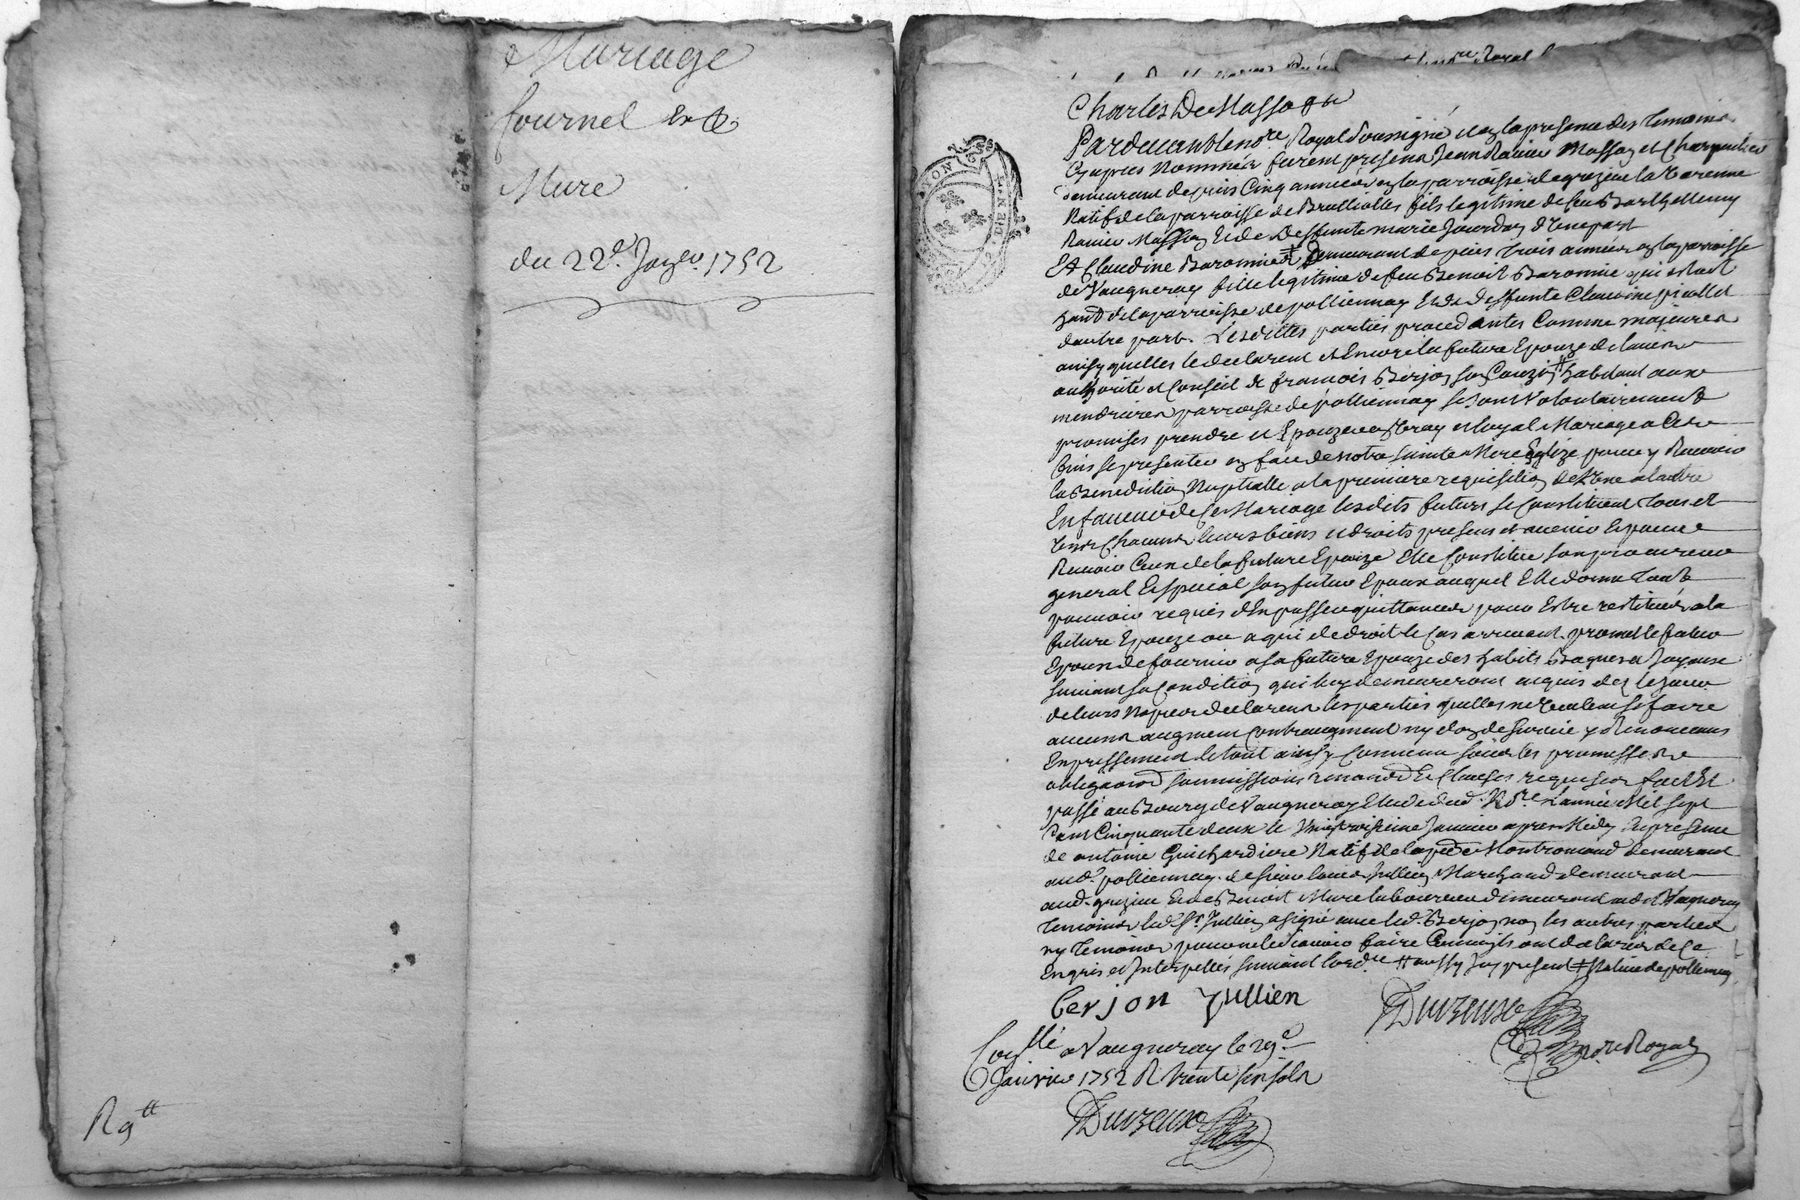 Mariage
fournel Et
Mure
du 22e. Janer. 1752
R 9tt
Royal
Charles De Masso
Pardevant le nore. Royal soussigné et en la presence des temoins
Cy apres Nommés furent presens Jean Ravier Masson et Charpentier
demeurant depuis Cinq années en la parroisse de grezieu la Varenne
Natif de la parroisse de Brullioles fils legitime de feu Barthellemy
Ravier Masson Et de Deffunte marie Jourdan d'Une part
Et Claudine Baronnier ‡ Demeurant depuis trois années en la parroisse
de Vaugneray fille legitime de feu Benoit Baronnier qui estoit
de la parroisse de pollionnay Et de deffunte Claudine
dautre part. Lesdittes parties procedantes Comme majeures
ainsy quelles le declarent et Encore la future Epouze de
authorité et Conseil de francois Berjon son Couzin # habitant aux
parroisse de pollionnay se sont Volontairement
promises prendre et Epouzer en Vray et loyal Mariage a Cet
fins se presenter en face de notre sainte Mere Eglize pour y Recevoir
la Benediction Nuptialle a la premiere requisition de l'Une a lautre
En faveur de Ce Mariage lesdits futurs se Constituent tous et
Uns Chacuns leurs biens et droits presens et avenir Et pour
Recevoir Ceux de la future Epouze Elle Constitue son procureur
general Et special son futur Epoux auquel Elle donne tout
pouvoir requis d'En passer quittances pour Estre restitués a la
future Epouze ou a qui de droit le Cas arrivant. promet le futur
Epoux de fournir a sa future Epouze des habits Bagues et Joyaux
suivant sa Condition qui luy demeureront acquis des le Jour
de leurs Nopces declarent les parties quelles ne Veulent se faire
aucuns augment Contraugment ny don de survie y Renoncants
Expressement le tout ainsy Convenu sous les promesses
obligaons. soumissions renonons. Et Clauses requises fait Et
passé au Bourg de Vaugneray Etude dud. Nore. L'année Mil sept
Cent Cinquante deux le Vingtroisieme Janvier apres Midy En presence
de antoine Guichardiere Natif de la psse. de Montromand demeurant
aud. pollionnay. de sieur Jullien Marchand demeurant
aud. grezieu Et de Benoit Mure laboureur demeurant aud. Vaugneray
temoins led. sr. Jullien a signé avec led. Berjon non les autres parties
ny temoins pour ne le scavoir faire Comm'ils ont declaré de Ce
Enquis et Interpellés suivant lordce. # aussy Icy present ‡ Native de pollionnay
berjon Jullien
Dutreuve
nore. Royal
Conllé a Vaugneray le 29e.
Janvier 1752 R trente six sols
Dutreuve